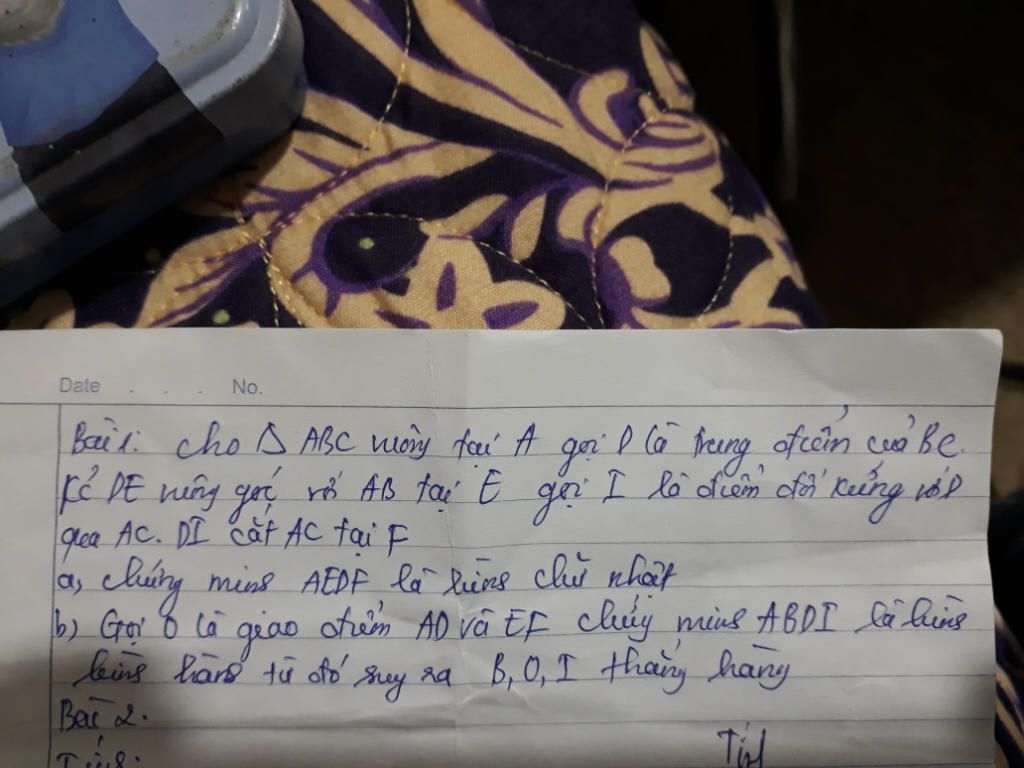 Date . . . . No.
Bài 1: cho Δ ABC vuông tại A gọi D là trung điểm của BC.
Kẻ DE vuông góc với AB tại E gọi I là điểm đối xứng với D
qua AC. DI cắt AC tại F
a, chứng minh AEDF là hình chữ nhật
b) Gọi O là giao điểm AD và EF chứng minh ABDI là hình
bình hành từ đó suy ra B, O, I thẳng hàng
Bài 2.